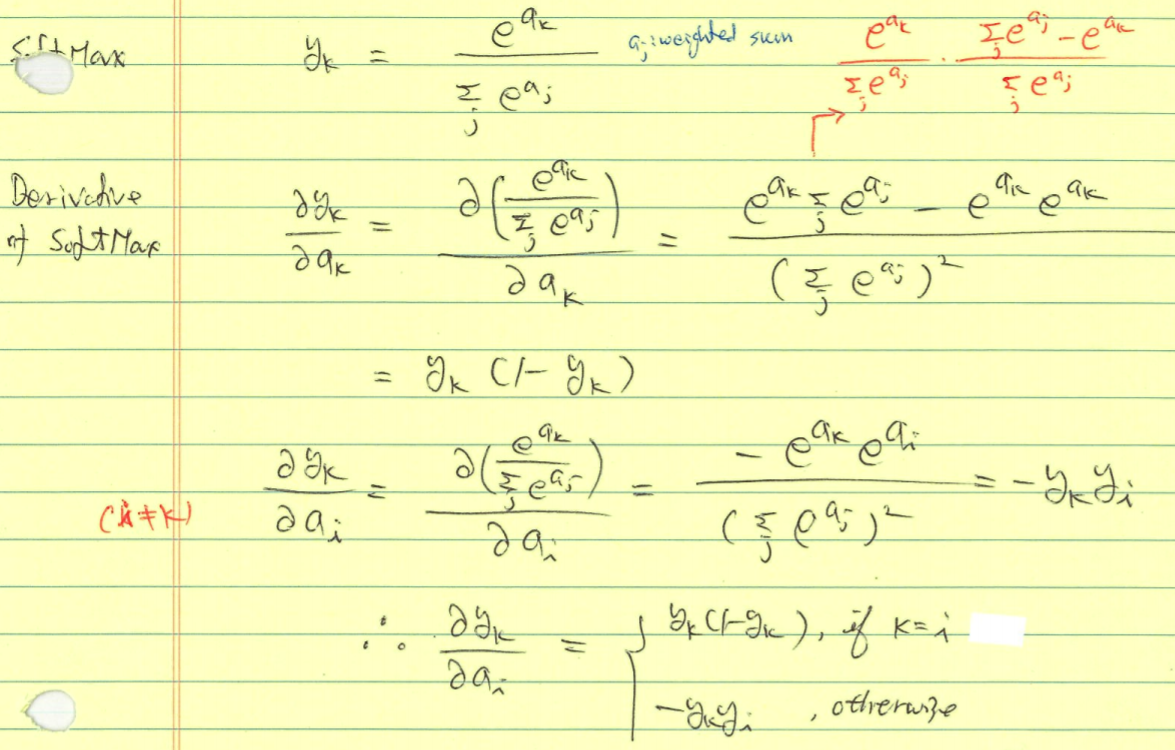 SoftMax y_k = e^{a_k} / Σ_j e^{a_j} a_j: weighted sum e^{a_k} / Σ_j e^{a_j} · (Σ_j e^{a_j} - e^{a_k}) / Σ_j e^{a_j}
Derivative
of SoftMax ∂y_k / ∂a_k = ∂(e^{a_k} / Σ_j e^{a_j}) / ∂a_k = (e^{a_k} Σ_j e^{a_j} - e^{a_k} e^{a_k}) / (Σ_j e^{a_j})^2
= y_k (1 - y_k)
(i ≠ k) ∂y_k / ∂a_i = ∂(e^{a_k} / Σ_j e^{a_j}) / ∂a_i = - e^{a_k} e^{a_i} / (Σ_j e^{a_j})^2 = - y_k y_i
∴ ∂y_k / ∂a_i = { y_k (1 - y_k), if k = i
- y_k y_i , otherwise